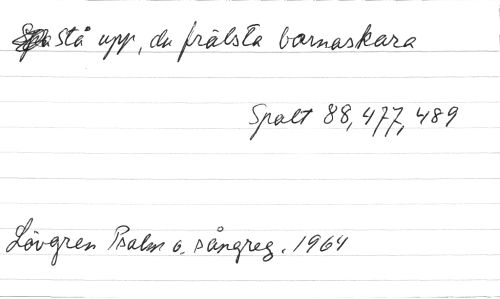 stå upp, du frälsta barnaskara
Spalt 88, 477, 489
Lövgren Psalm o. sångreg. 1964